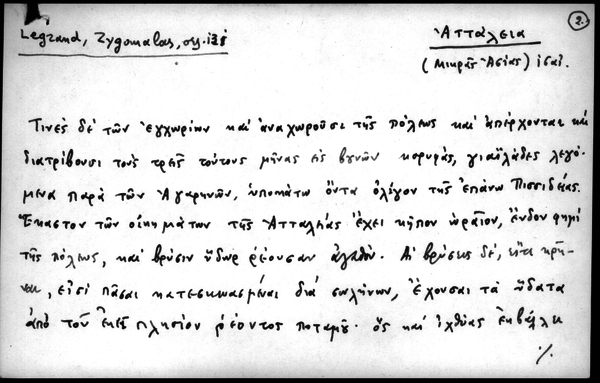 2.
Legrand, Zygomalas, σς. 128
Ἀττάλεια
(Μικρᾶς Ἀσίας)
Τινὲς δὲ τῶν ἐγχωρίων καὶ ἀναχωροῦσι τῆς πόλεως καὶ ἀπέρχονται καὶ
διατρίβουσι τοὺς τρεῖς τούτους μῆνας εἰς βουνῶν κορυφάς, γιαϊλάδες λεγό-
μενα παρὰ τῶν Ἀγαρηνῶν, ὑποκάτω ὄντα ὀλίγον τῆς ἐπάνω Πισσιδείας.
Ἕκαστον τῶν οἰκημάτων τῆς Ἀτταλείας ἔχει κῆπον ὡραῖον, ἔνδον φημὶ
τῆς πόλεως, καὶ βρύσιν ὕδωρ ῥέουσαν ἀγαθόν. Αἱ βρύσεις δέ, εἴτε κρῆ-
ναι, εἰσὶ πᾶσαι κατεσκευασμέναι διὰ σωλήνων, ἔχουσαι τὰ ὕδατα
ἀπὸ τοῦ ἐκεῖ πλησίον ῥέοντος ποταμοῦ· ὃς καὶ ἰχθύας ἐκβάλλει
./.